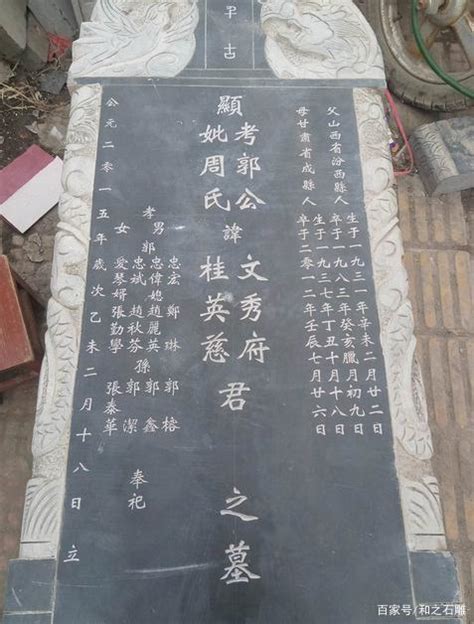 古
父山西省汾西縣人
生于一九三一年辛未二月廿二日
卒于一九八三年癸亥臘月初九日
母甘肅省成縣人
生于一九三七年丁丑十月十八日
卒于二〇一二年壬辰七月廿六日
顯
考郭公
妣周氏
諱
文秀府
桂英慈
君之墓
孝男郭
忠宏 鄭琳 郭榕
忠偉媳趙麗英孫郭鑫
忠斌 趙秋芬 郭潔
女愛琴婿張勤學 張泰華
奉祀
公元二〇一五年歲次乙未二月十八日立
百家号/和之石雕